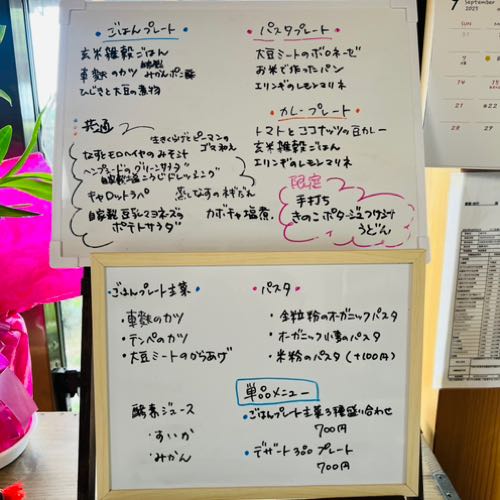 ・ごはんプレート・
玄米雑穀ごはん
車麩のカツ 自家製みかんポン酢
ひじきと大豆の煮物
・パスタプレート・
大豆ミートのボロネーゼ
お米で作ったパン
エリンギのレモンマリネ
・カレープレート・
トマトとココナッツの豆カレー
玄米雑穀ごはん
エリンギのレモンマリネ
共通
生きくらげとピーマンの
ゴマ和え
なすとモロヘイヤのみそ汁
ヘンプシードのグリーンサラダ
自家製塩こうじドレッシング
キャロットラペ
蒸しなすのネギだれ
自家製豆乳マヨネーズの
ポテトサラダ
カボチャ塩煮
限定
手打ち
きのこポタージュ
うどん
・ごはんプレート主菜・
・車麩のカツ
・テンペのカツ
・大豆ミートのからあげ
・パスタ・
・全粒粉のオーガニックパスタ
・オーガニック小麦のパスタ
・米粉のパスタ(+100円)
酵素ジュース
・すいか
・みかん
単品メニュー
・ごはんプレート主菜3種盛り合わせ
700円
・デザート3品プレート
700円
September
2025